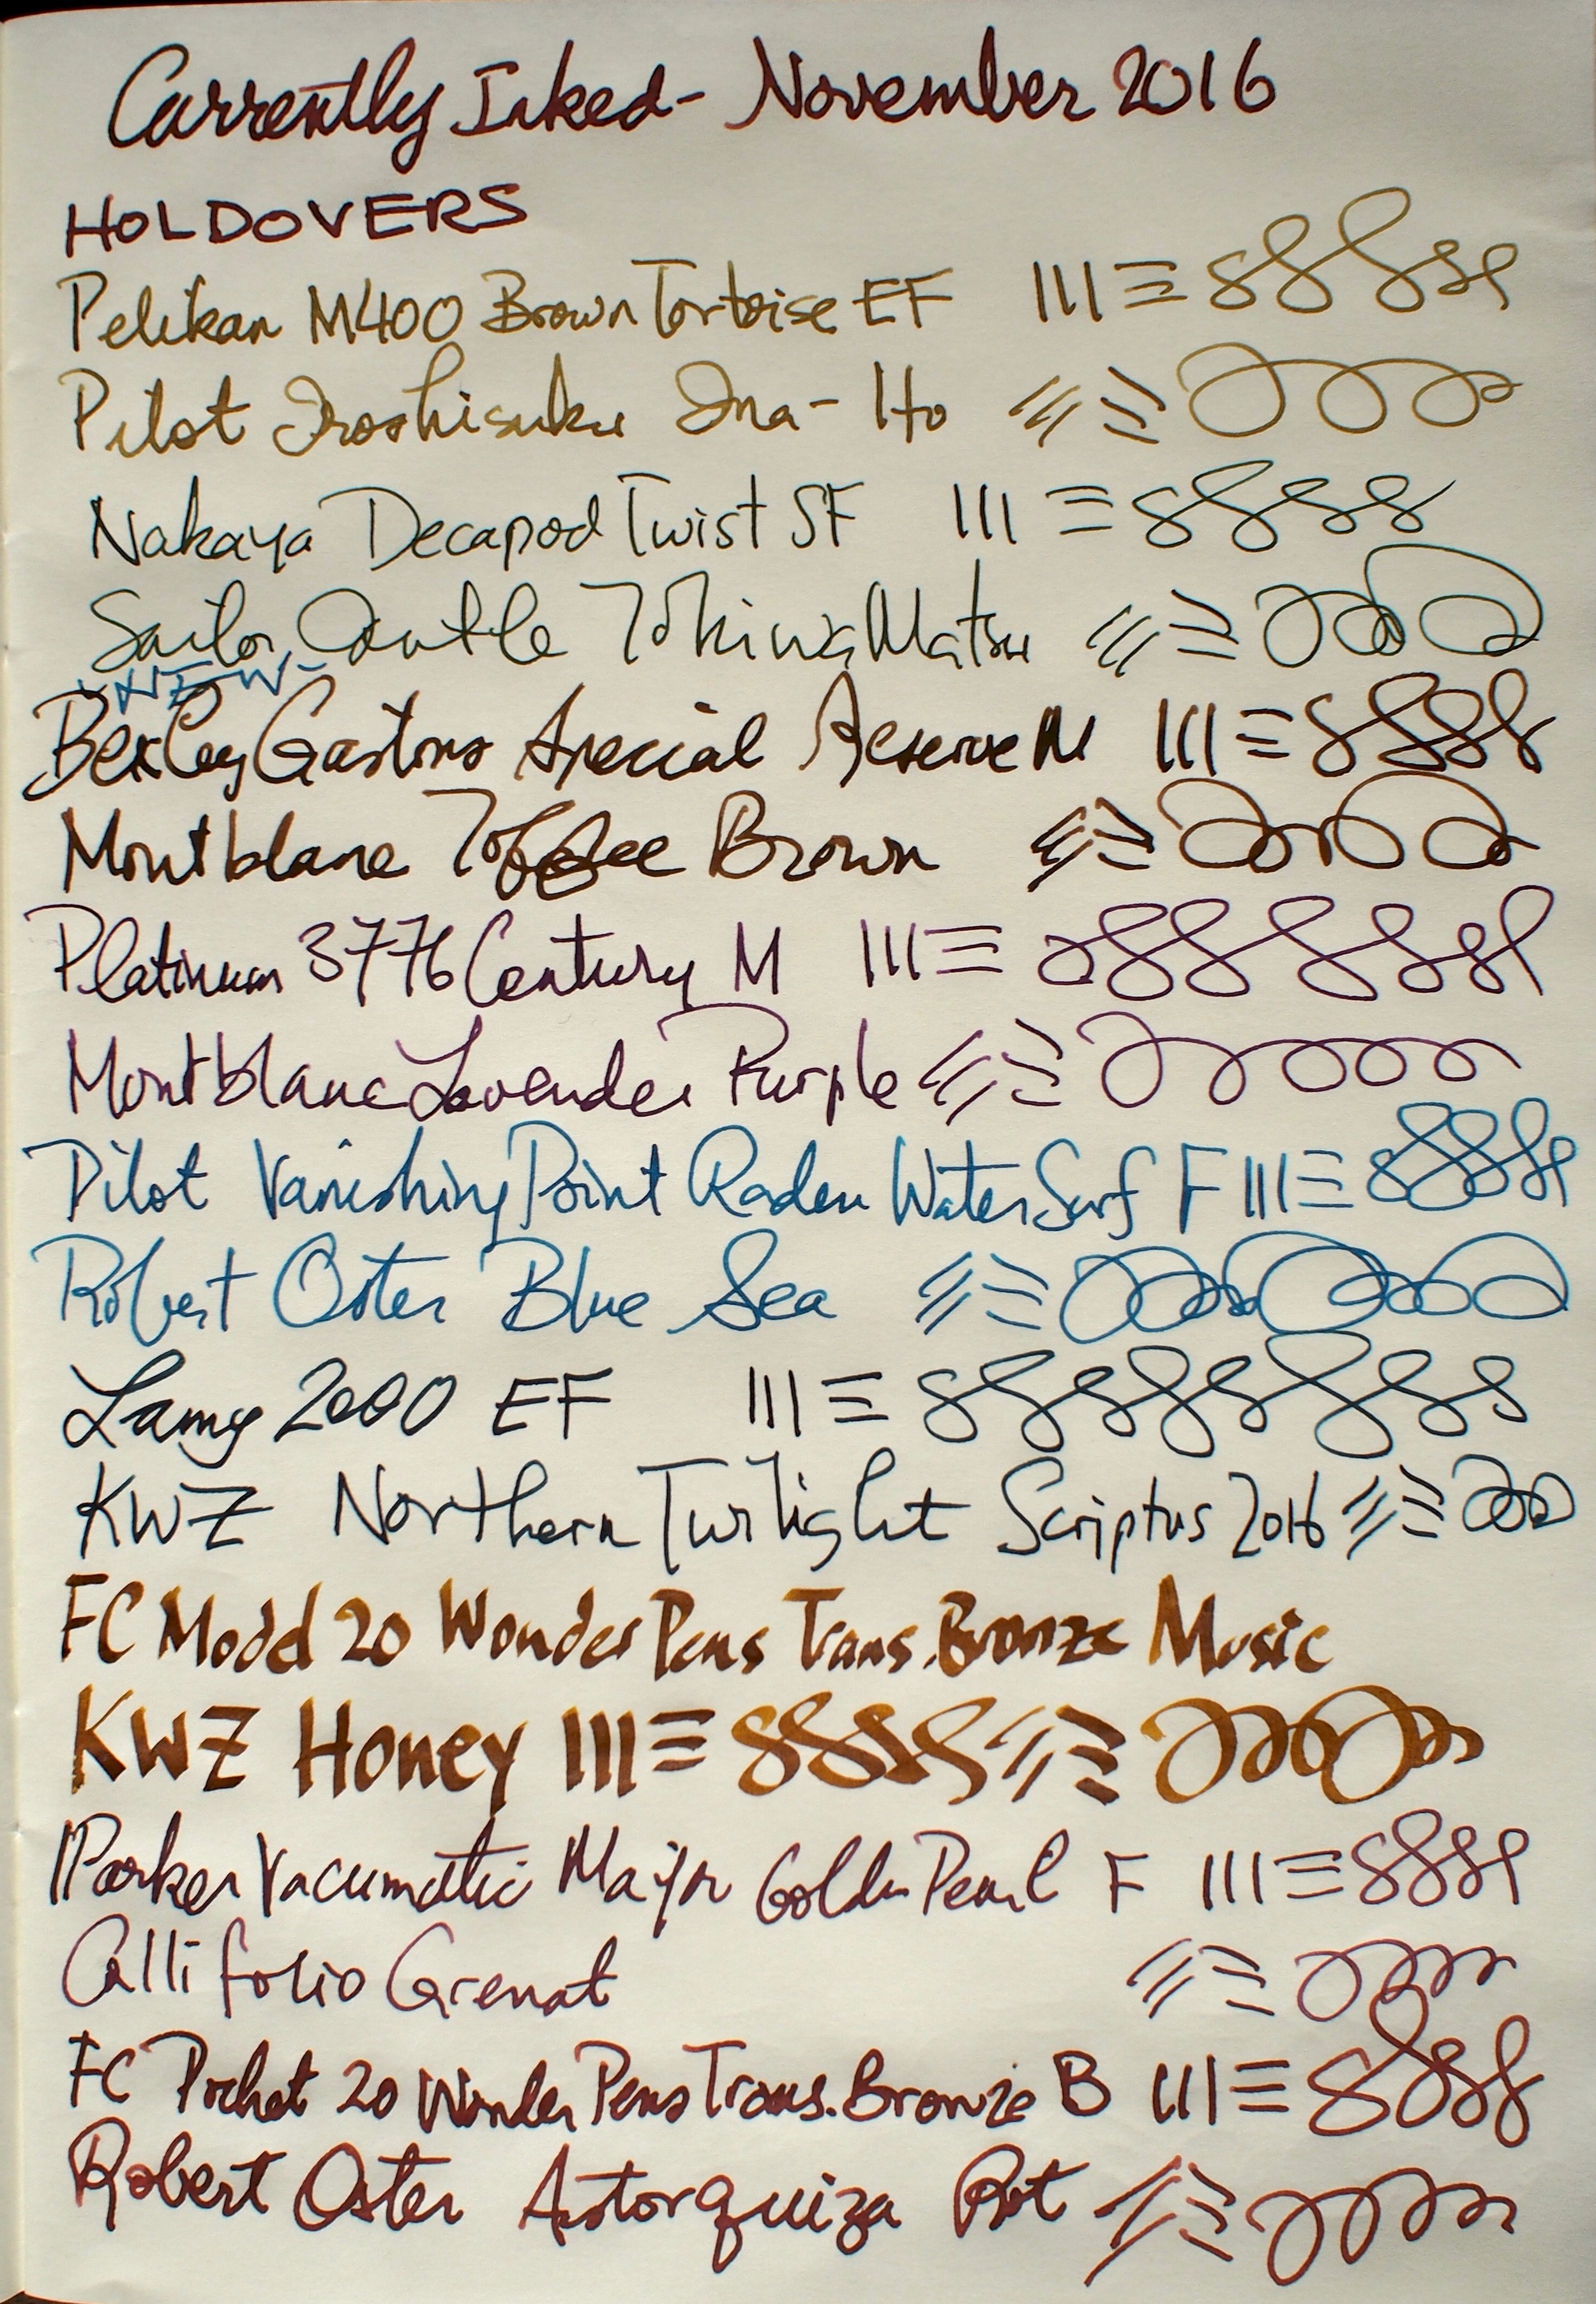 Currently Inked - November 2016
HOLDOVERS
Pelikan M400 Brown Tortoise EF
Pilot Iroshizuku Ina-Ho
Nakaya Decapod Twist SF
Sailor Jentle Tokiwa Matsu
-NEW-
Bexley Gastons Special Reserve M
Montblanc Toffee Brown
Platinum 3776 Century M
Montblanc Lavender Purple
Pilot Vanishing Point Raden Water Surf F
Robert Oster Blue Sea
Lamy 2000 EF
KWZ Northern Twilight Scriptus 2016
FC Model 20 Wonder Pens Trans. Bronze Music
KWZ Honey
Parker Vacumatic Major Golden Pearl F
Callifolio Grenat
FC Pocket 20 Wonder Pens Trans. Bronze B
Robert Oster Astorquiza Rot